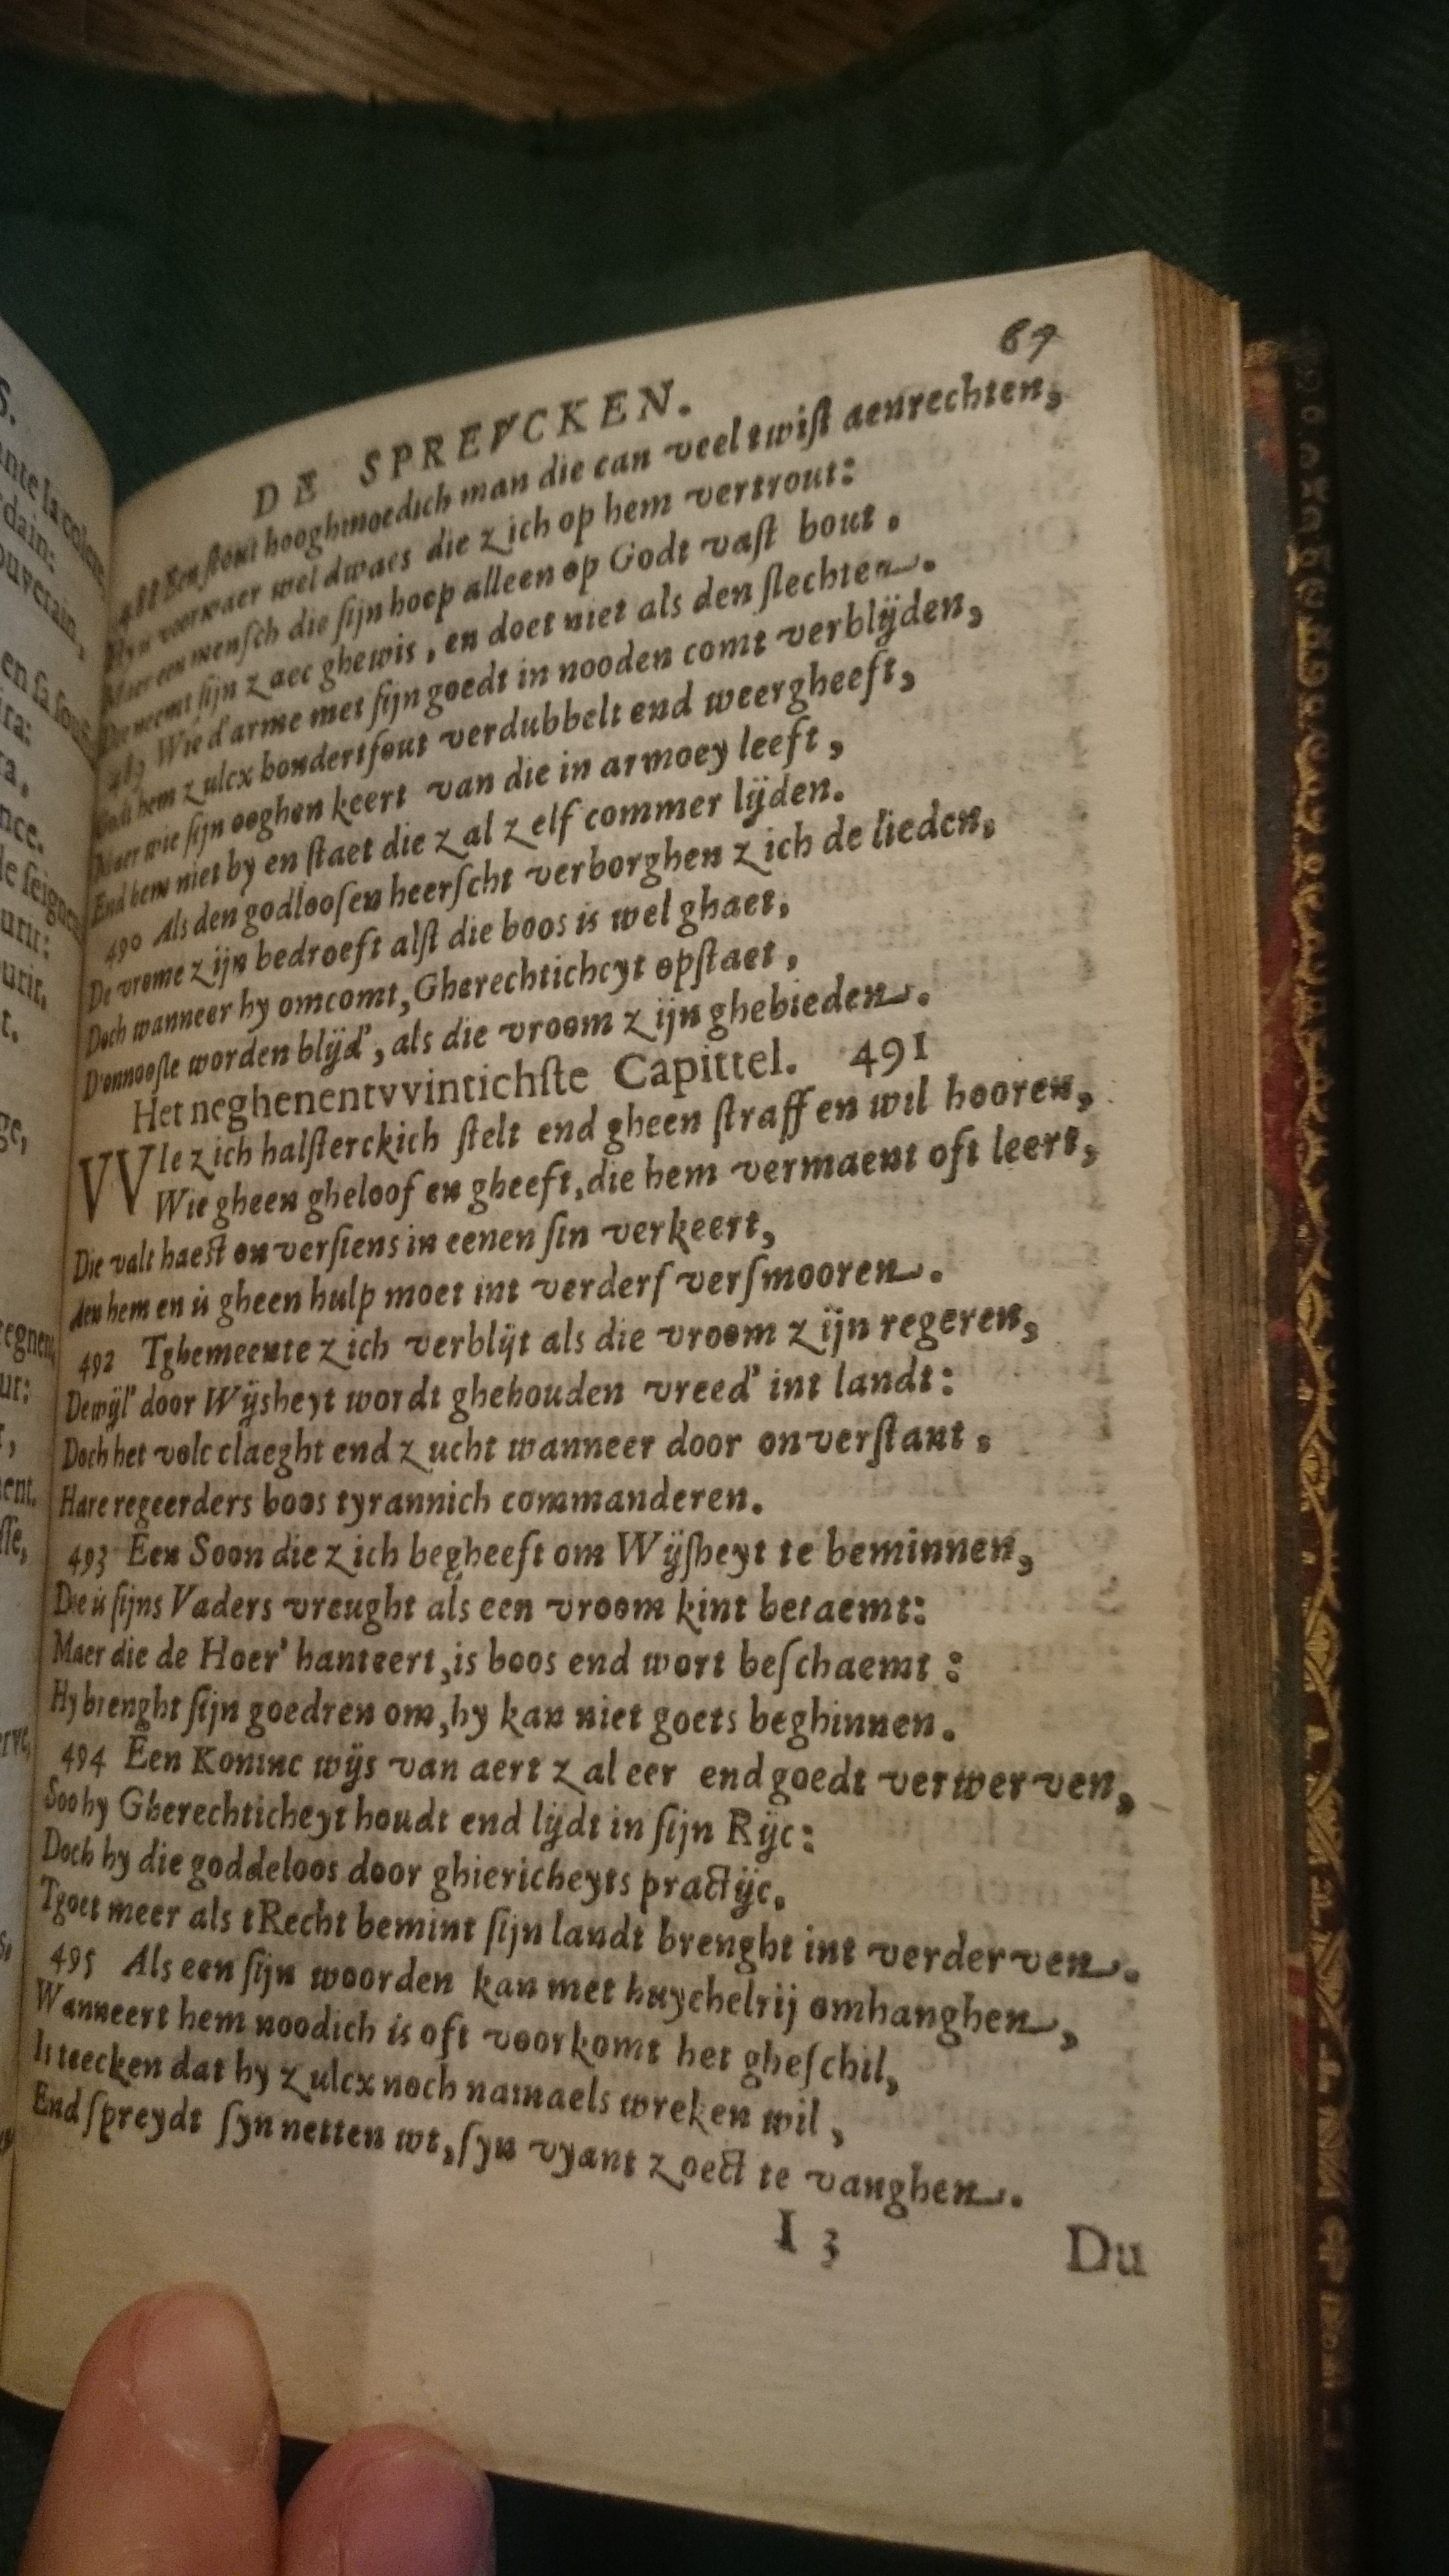 67
DE SPREVCKEN.
488 Een stout hooghmoedich man die can veel twist aenrechten,
voorwaer wel dwaes die zich op hem vertrout:
Maer een mensch die sijn hoep alleen op Godt vast bout.
Die neemt sijn zaec ghewis, en doet niet als den slechten.
489 Wie d'arme met sijn goedt in nooden comt verblijden,
Godt hem zulcx hondertfout verdubbelt end weergheeft,
Maer wie sijn ooghen keert van die in armoey leeft,
End hem niet by en staet die zal zelf commer lijden.
490 Als den godloosen heerscht verborghen zich de lieden,
De vrome zijn bedroeft alst die boos is wel ghaet,
Doch wanneer hy omcomt, Gherechtichcyt opstaet,
D'onnoosle worden blijd', als die vroom zijn ghebieden.
Het neghenentvvintichste Capittel. 491
VVIe zich halsterckich stelt end gheen straff en wil hooren,
Wie gheen gheloof en gheeft, die hem vermaent oft leert,
Die valt haest onversiens in eenen sin verkeert,
Aen hem en is gheen hulp moet int verderf versmooren.
492 Tghemeente zich verblijt als die vroom zijn regeren,
Dewijl' door Wijsheyt wordt ghehouden vreed' int landt:
Doch het volc claeght end zucht wanneer door onverstant,
Hare regeerders boos tyrannich commanderen.
493 Een Soon die zich begheeft om Wijsheyt te beminnen,
Die is sijns Vaders vreught als een vroom kint betaemt:
Maer die de Hoer' hanteert, is boos end wort beschaemt:
Hy brenght sijn goedren om, hy kan niet goets beghinnen.
494 Een Koninc wijs van aert zal eer end goedt verwerven,
Soo hy Gherechticheyt houdt end lijdt in sijn Rijc:
Doch hy die goddeloos door ghiericheyts practijc,
Tgoet meer als tRecht bemint sijn landt brenght int verderven.
495 Als een sijn woorden kan met huychelrij omhanghen,
Wanneert hem noodich is oft voorkomt het gheschil,
Ist teecken dat hy zulcx noch namaels wreken wil,
End spreydt syn netten wt, syn vyant zoect te vanghen.
I 3 Du